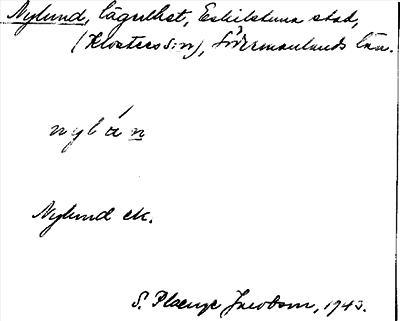 Nylund, lägenhet, Eskilstuna stad,
(Klosters sn), Södermanlands län.
nylán
Nylund ek.
S. Plaenge Jacobson, 1943.